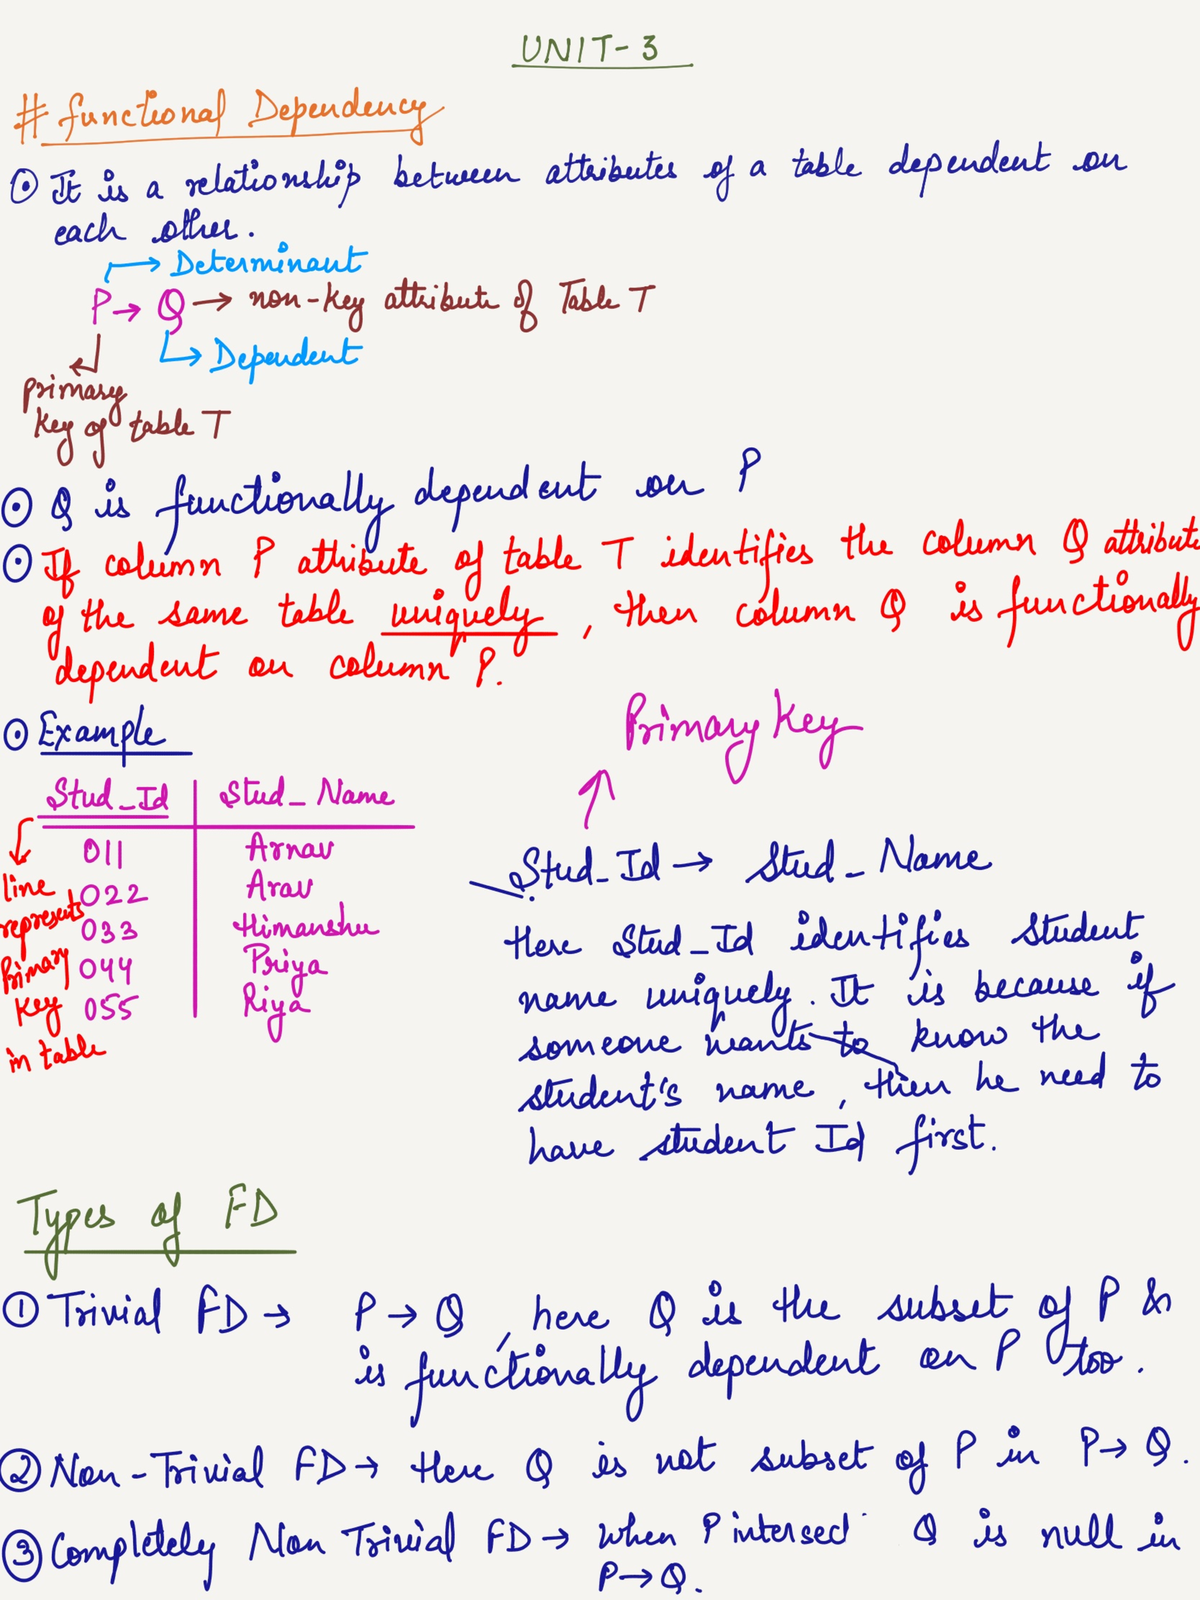 UNIT-3
# functional Dependency
⊙ It is a relationship between attributes of a table dependent on
each other.
→ Determinant
P → Q → non-key attribute of Table T
→ Dependent
primary
key of table T
⊙ Q is functionally dependent on P
⊙ If column P attribute of table T identifies the column Q attribute
of the same table uniquely, then column Q is functionally
dependent on column P.
⊙ Example
Primary Key
Stud_Id | Stud_Name
011 Arnav
022 Arav
033 Himanshu
044 Priya
055 Riya
line
represents
Primary
Key
in table
Stud_Id → Stud_Name
Here Stud_Id identifies student
name uniquely. It is because if
someone wants to know the
student's name, then he need to
have student Id first.
Types of FD
① Trivial FD → P → Q, here Q is the subset of P &
is functionally dependent on P too.
② Non-Trivial FD → Here Q is not subset of P in P → Q.
③ Completely Non Trivial FD → when P intersect Q is null in
P → Q.